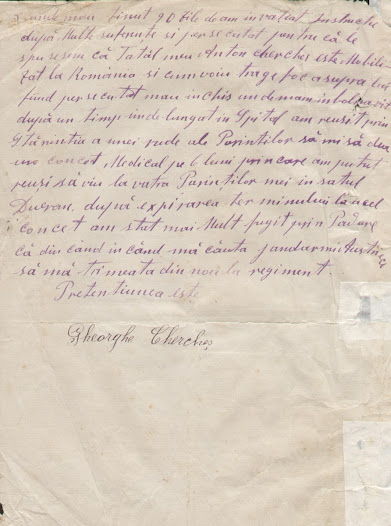 unde mau tinut 90 zile de am invatat Instructie
după Multe suferinte si persecutat pentru că le
spusesem că Tatăl meu Anton Cherches este Mobili
zat la România si eu nu voiu trage foc asupra lui
fiind persecutat mau inchis unde mam inbolnavit
după un timp indelungat in Spital am reusit prin
Stăruintia a unei rude ale Părintilor să mi să dea
un concet Medical pe 6 luni prin care am putut
reusi să viu la vatra Părintilor mei in satul
după expirarea terminului la acel
concet am stat mai Mult fugit prin Pădure
că din când in când mă căuta jandarmii Austrieci
să mă trimeata din nou la regiment.
Pretentiunea este
Gheorghe Cherches